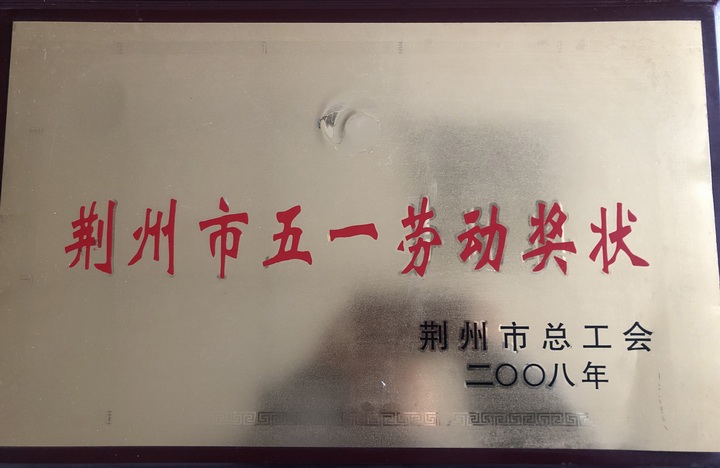 荆州市五一劳动奖状
荆州市总工会
二〇〇八年